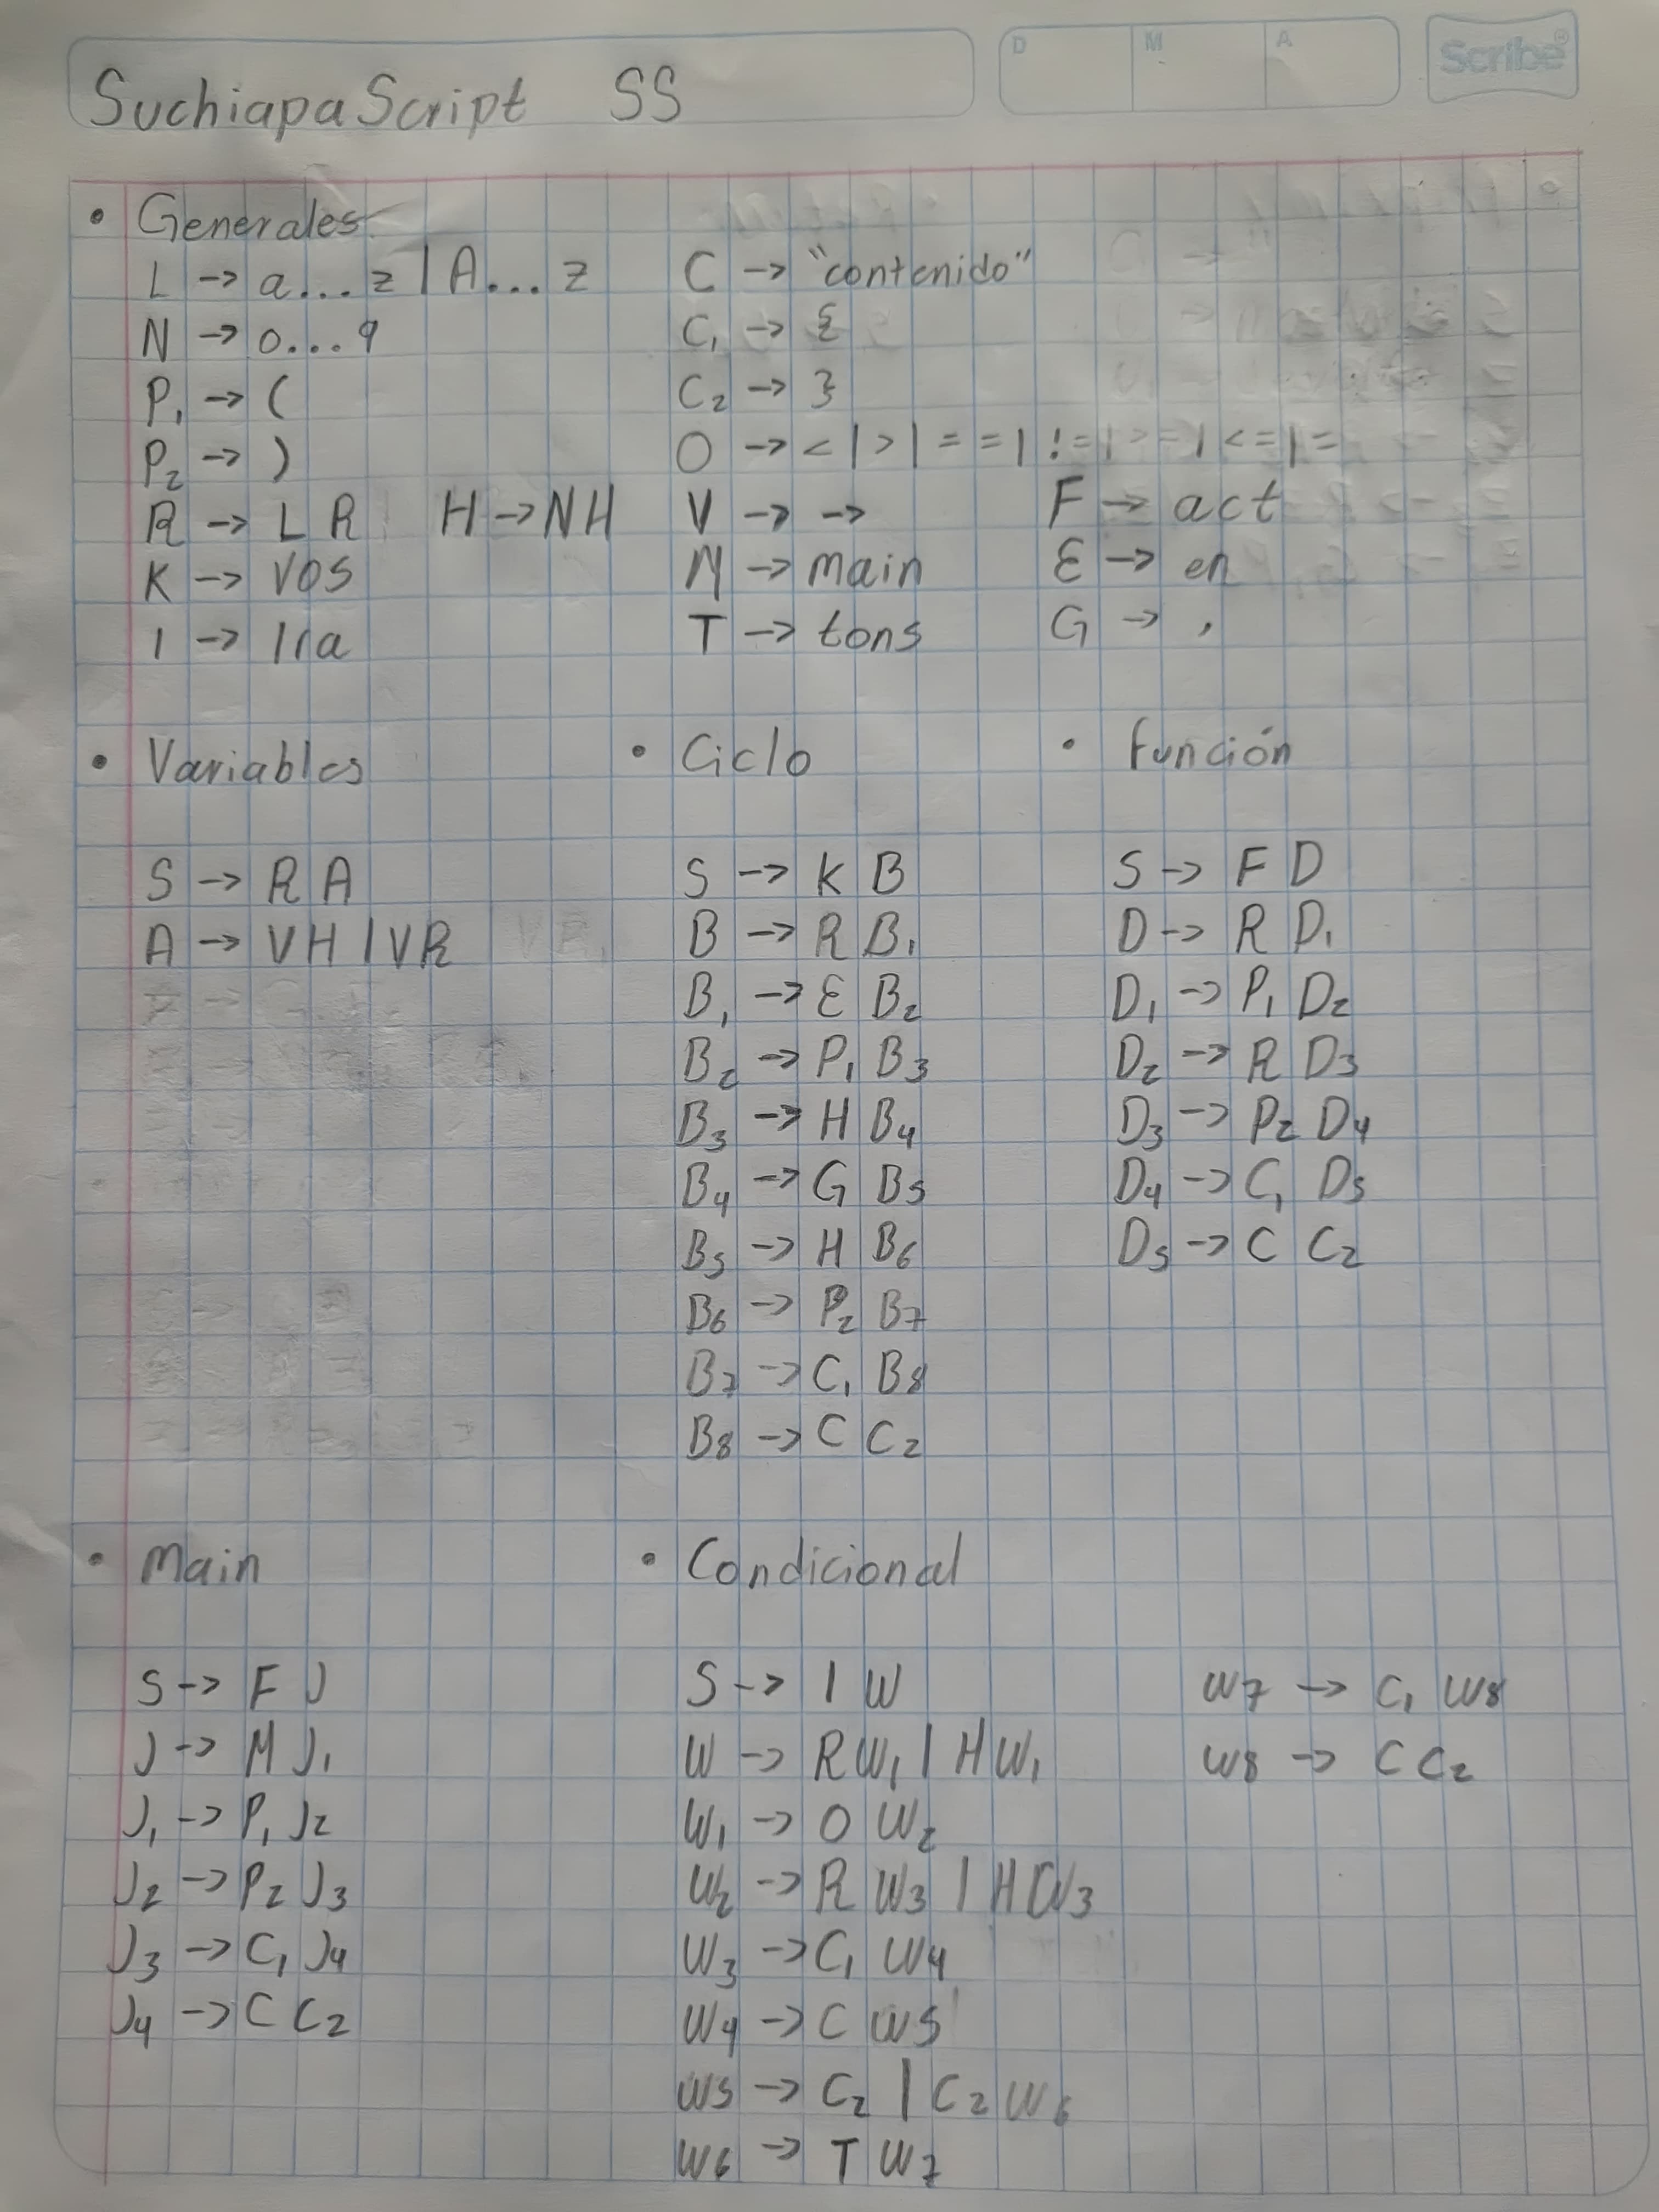 SuchiapaScript SS
D M A Scribe®
• Generales.
L → a...z | A...z
N → 0...9
P₁ → (
P₂ → )
R → L R H → NH
K → vos
I → Ira
C → "contenido"
C₁ → {
C₂ → }
O → < | > | == | != | >= | <= | =
V → →
M → main
T → tons
F → act
E → en
G → ,
• Variables
S → R A
A → VH | VR
• Ciclo
S → K B
B → R B₁
B₁ → E B₂
B₂ → P₁ B₃
B₃ → H B₄
B₄ → G B₅
B₅ → H B₆
B₆ → P₂ B₇
B₇ → C₁ B₈
B₈ → C C₂
• función
S → F D
D → R D₁
D₁ → P₁ D₂
D₂ → R D₃
D₃ → P₂ D₄
D₄ → C₁ D₅
D₅ → C C₂
• Main
S → F J
J → M J₁
J₁ → P₁ J₂
J₂ → P₂ J₃
J₃ → C₁ J₄
J₄ → C C₂
• Condicional
S → I W
W → R W₁ | H W₁
W₁ → O W₂
W₂ → R W₃ | H W₃
W₃ → C₁ W₄
W₄ → C W₅
W₅ → C₂ | C₂ W₆
W₆ → T W₇
W₇ → C₁ W₈
W₈ → C C₂